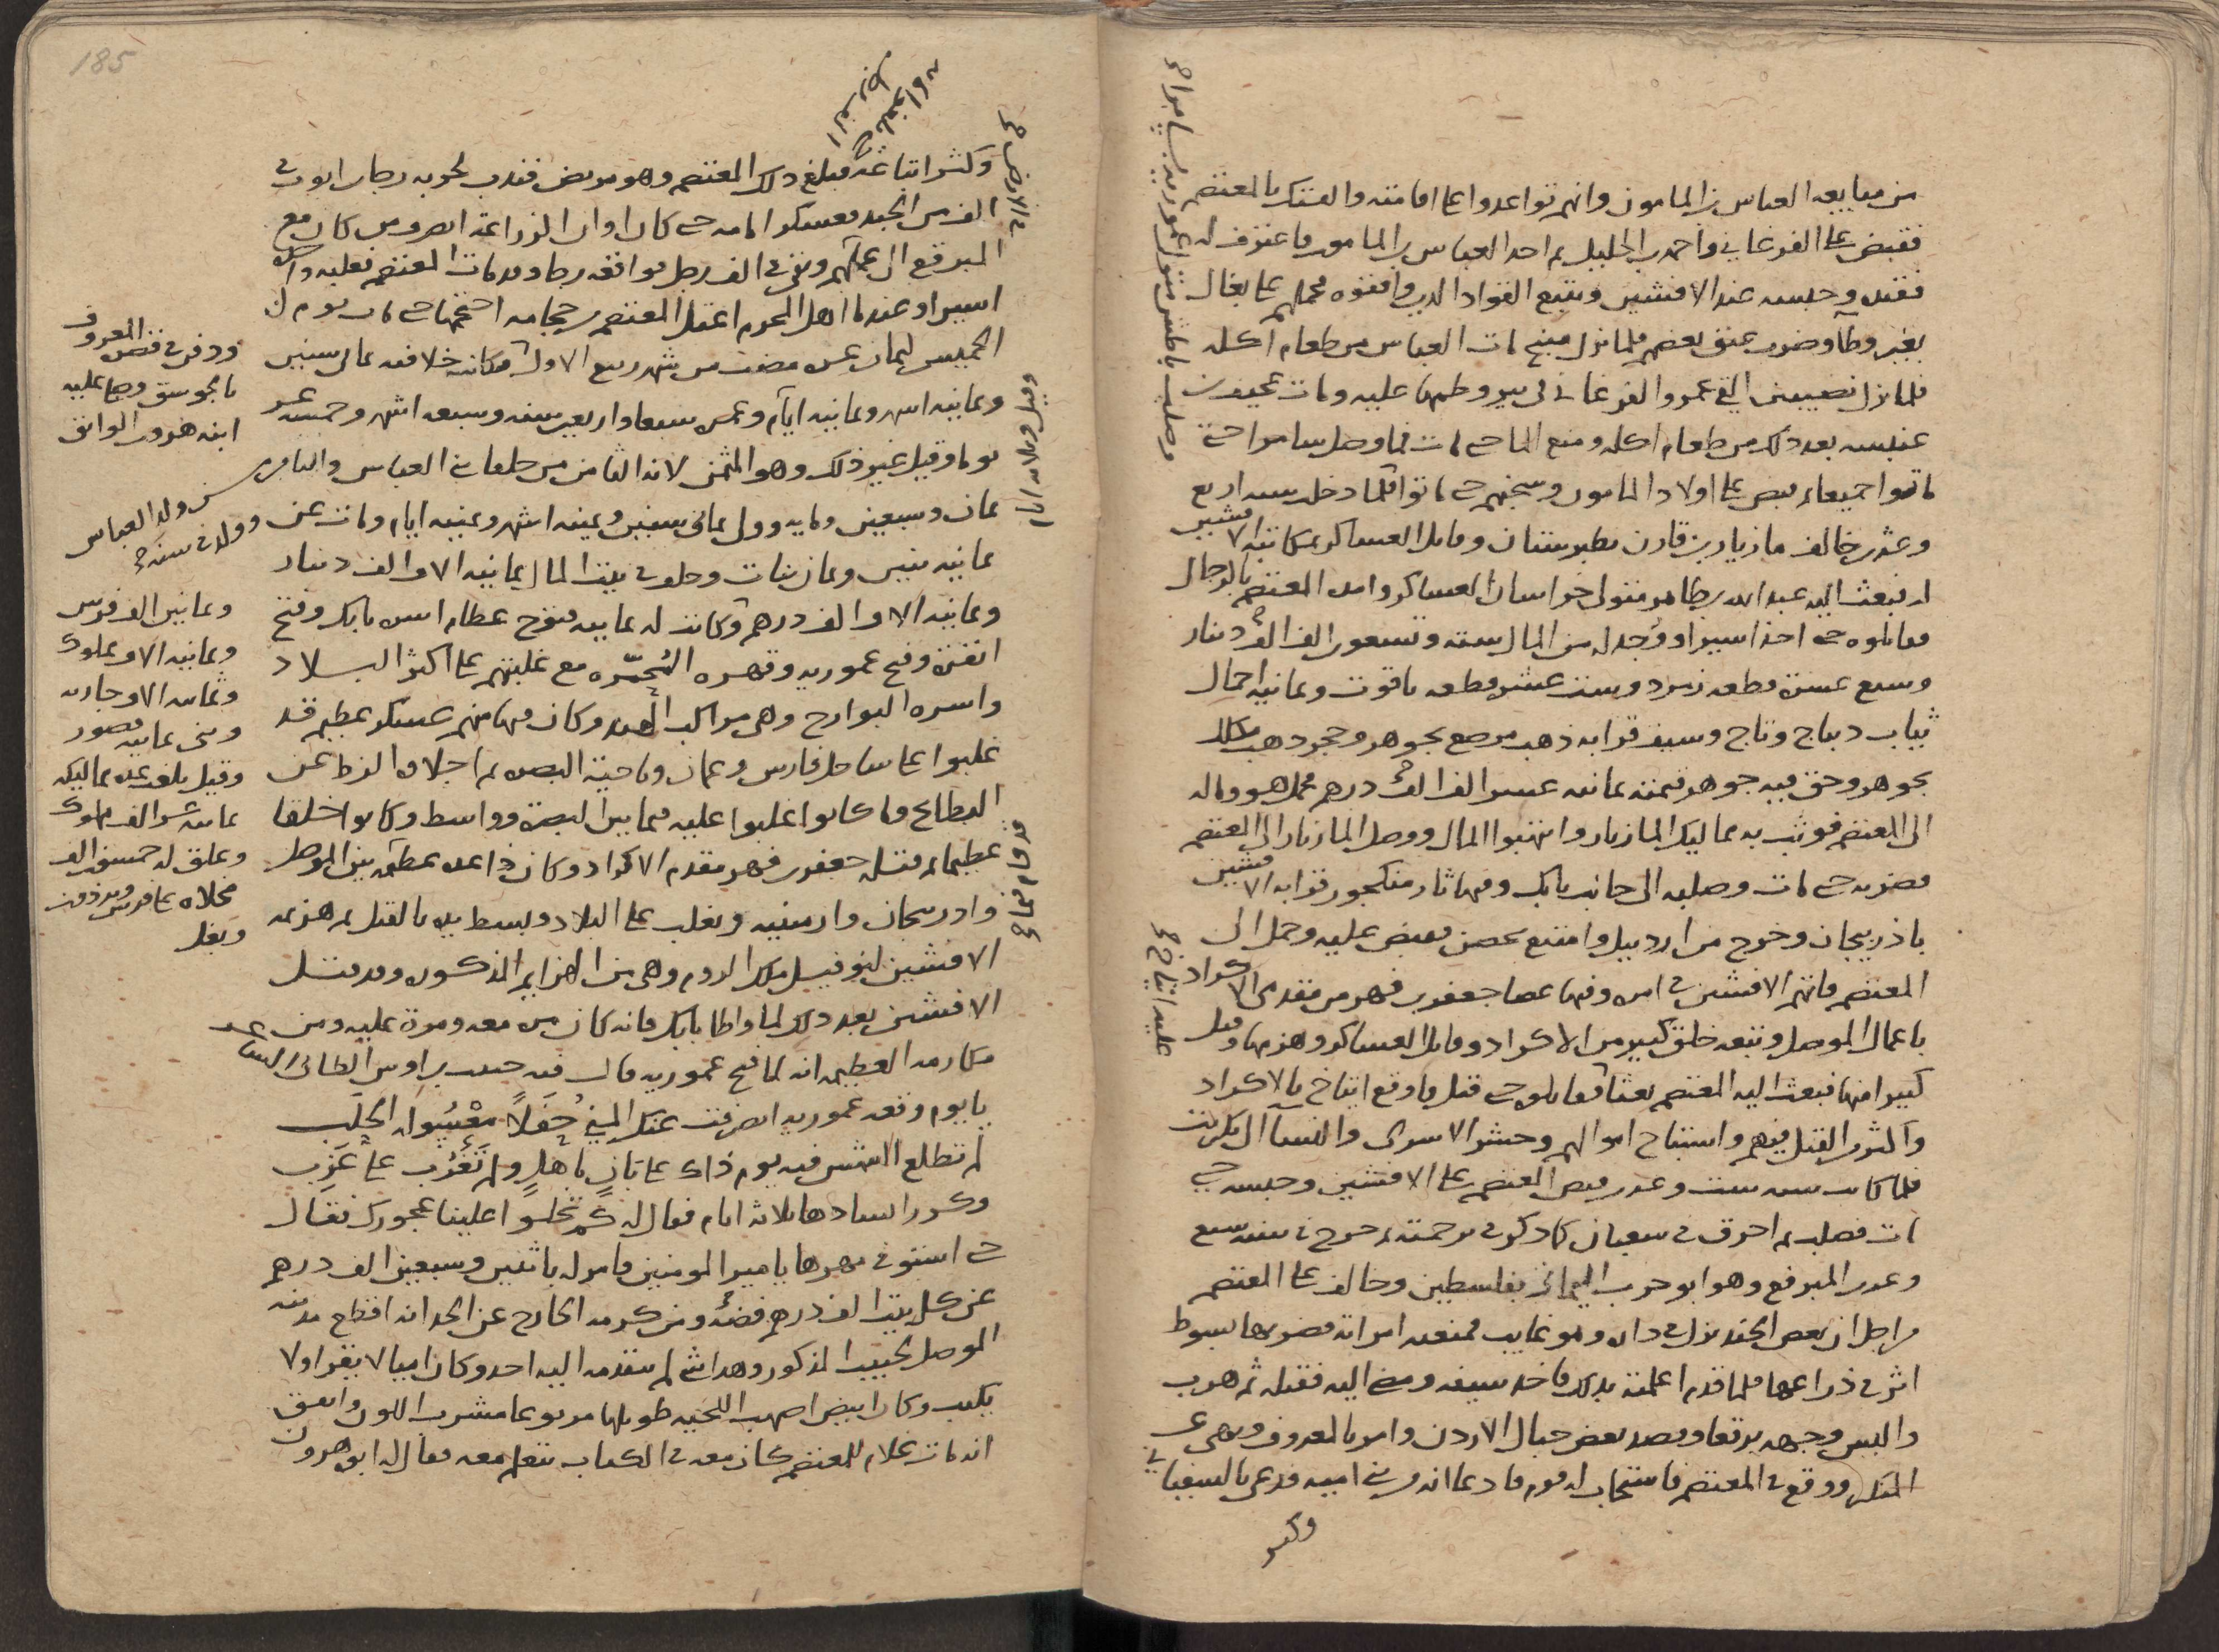 من مبايعه العباس بن المامون وانهم تواعدوا على اقامته والفتك بالمعتصم
فقبض على الفرغاني واحمد بن الخليل ثم احد العباس بن المامون فاعترف له
فقتله وحبسه عند الافشين وتتبع القواد الذين وافقوه فحملهم على بغال
بغير وطآ وضرب عنق بعضهم فلما نزل منبج مات العباس من طعام اكله
فلما نزل نصيبين القي عمرو الفرغاني في بير وطمها عليه ومات عجيف بن
عنبسه بعد ذلك من طعام اكله ومنع الما حتى مات فما وصل سامرا حتى
ماتوا جميعا ثم قبض على اولاد المامون وسجنهم حتى ماتوا فلما دخلت سنه اربع
وعشرين خالف مازيار بن قارن بطبرستان وقاتل العساكر بمكاتبه الافشين
له فبعث اليه عبد الله بن طاهر متولي خراسان العساكر وامده المعتصم بالرجال
فقاتلوه حتى اخذ اسيرا ووجد له من المال سته وتسعون الف الف دينار
وسبع عشرة قطعه زمرد وست عشر قطعه ياقوت وثمانيه احمال
ثياب ديباج وتاج وسيف قرابه ذهب مرصع بجوهر وحجر ذهب مكلل
بجوهر وحق فيه جوهر قيمته ثمانيه عشر الف الف درهم فحمل هو وماله
الى المعتصم فوثب به مماليك المازيار وانتهبوا المال ووصل المازيار الى المعتصم
فضربه حتى مات وصلبه الى جانب بابك وفيها ثار منكجور قرابه الافشين
باذربيجان وخرج من اردبيل وامتنع بحصن فقبض عليه وحمل الى
المعتصم فاتهم الافشين في امره وفيها عصا جعفر بن فهر من مقدمي الاكراد
باعمال الموصل وتبعه خلق كثير من الاكراد وقاتل العساكر وهزمها وقتل
كثيرا منها فبعث اليه المعتصم بعثا فقاتلوه حتى قتل واوقع ايتاخ بالاكراد
واكثر القتل فيهم واستباح اموالهم وحشر الاسرى والنسا الى تكريت
فلما كانت سنه ست وعشرين قبض المعتصم على الافشين وحبسه حتى
مات فصلب ثم احرق في شعبان كما ذكر في ترجمته ثم خرج في سنه سبع
وعشرين المبرقع وهو ابو حرب اليماني بفلسطين وخالف على المعتصم
من اجل ان بعض الجند نزل في داره وهو غايب فمنعته امراته فضربها بسوط
اثر في ذراعها فلما قدم اعلمته بذلك فاخذ سيفه ومضى اليه فقتله ثم هرب
والبس وجهه برقعا وقصد بعض جبال الاردن وامر بالمعروف ونهى عن
المنكر ووقع في المعتصم فاستجاب له قوم فادعا انه من بني اميه فدعي بالسفياني
وكثر
وصلب باطس متولي عموريه بسامرا صح
عليه ايتاخ صح
185
وكثر اتباعه فبلغ ذلك المعتصم وهو مريض فندب لحربه رجا بن ايوب في
الف من الجند فعسكر امامه حتى كان اوان الزراعه انصرف من كان مع
المبرقع الى عملهم وبقي في الف رجل فواقعه رجا وقد مات المعتصم فغلبه واخذه
اسيرا وعندما اهل المحرم اعتل المعتصم من حجامه احتجمها حتى مات يوم
الخميس لثمان عشره مضت من شهر ربيع الاول فكانت خلافته ثمان سنين
وثمانيه اشهر وثمانيه ايام وعمره سبعا واربعين سنه وسبعه اشهر وخمسه عشر
يوما وقيل غير ذلك وهو المثمن لانه الثامن من خلفا بني العباس والثامن
من ولد العباس وولد في سنة
ثمان وسبعين ومايه وولي ثماني سنين وثمنيه اشهر وثمنيه ايام ومات عن
ثمانيه بنين وثمان بنات وخلف في بيت المال ثمانيه الاف الف دينار
وثمانيه الاف الف درهم وكانت له ثمانيه فتوح عظام اسره بابك وفتح
انقره وفتح عموريه وقهره المحمره مع غلبتهم على اكثر البلاد
واسره البوارج وهي مراكب الهند وكان فيها منهم عسكر عظيم قد
غلبوا على ساحل فارس وعمان وناحية البصره ثم اجلاه الزط عن
البطائح وما كانوا غلبوا عليه فيما بين البصره وواسط وكانوا خلقا
عظيما ثم قتله جعفر بن فهر مقدم الاكراد وكان ذا عده عظيمه بين الموصل
واذربيجان وارمنيه وتغلب على البلاد وبسط يده بالقتل ثم هزيمه
الافشين لتوفيل ملك الروم وهي من الهزايم المذكوره وقد قتل
الافشين بعد ذلك لما واطا بابك فانه كان من معدوده عليه ومن
مكارمه العظيمه انه لما فتح عموريه قال فيه حبيب بن اوس الطائي
يا يوم وقعه عموريه انصرفت عنك المنى حفلا معسوله الحلب
لم تطلع الشمس فيه يوم ذاك على بان باهل ولم تغرب على عزب
وكرر انشادها ثلاثه ايام فقال له كم تجلوا علينا عجوزك فقال
حتى استوفي مهرها يا امير المومنين فامر له باثنين وسبعين الف درهم
عن كل بيت الف درهم فضه ومن كرمه الخارج عن الحد انه اقطع مدينه
الموصل لحبيب المذكور وهذا شي لم يتقدمه اليه احد وكان اميا لا يقرا ولا
يكتب وكان ابيض اصهب اللحيه طويلها مربوعا مشرب اللون واتفق
انه مات غلام للمعتصم كان معه في الكتاب يتعلم معه فقال له ابوه هرون
ودفن في قصره المعروف
بالجوسق وصلى عليه
ابنه هرون الواثق
وثمانين الف فرس
وثمانيه الاف مملوك
وثمانيه الاف جاريه
وبنى ثمانيه قصور
وقيل بلغت عده مماليكه
ثمانيه عشر الف مملوك
وعلق له خمسين الف
مخلاه على فرس وبرذون
وبغل